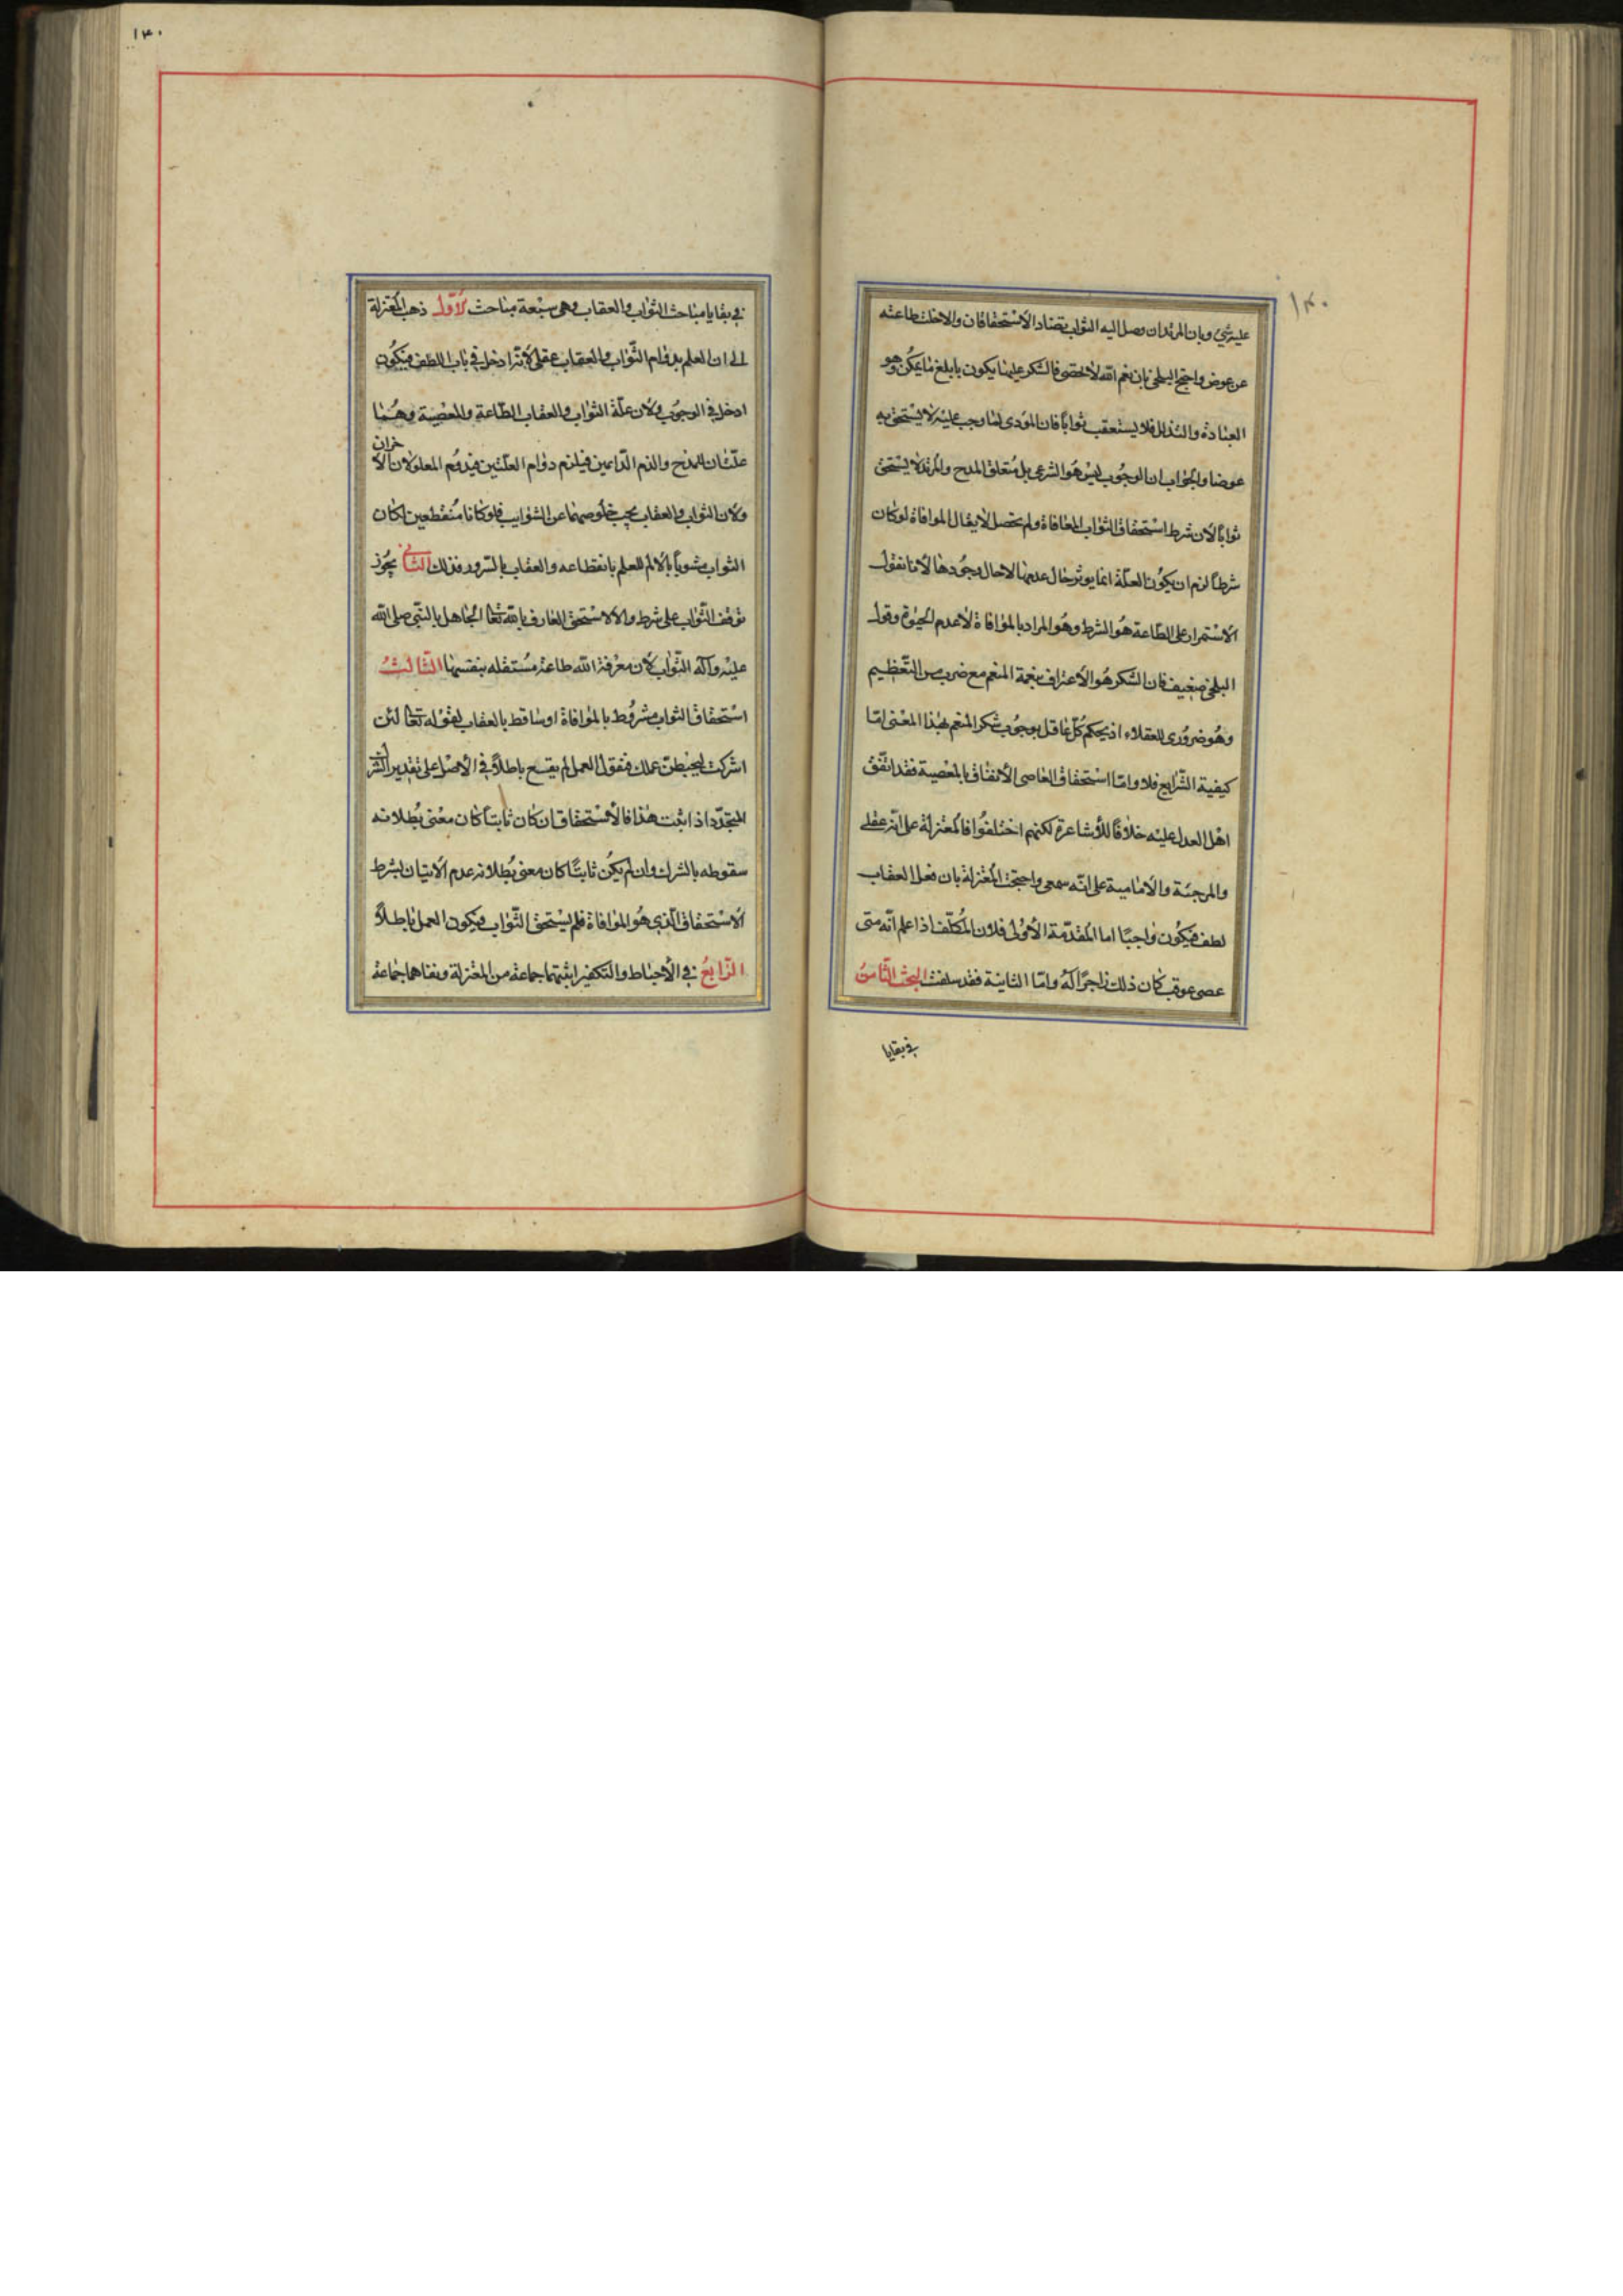 ١٣٠
١٣٠
عليه شيء وبان المرتد ان وصل اليه الثواب تضاد الاستحقاقان والا خلت طاعته
عن عوض واحتج البلخي بان نعم الله لا تحصى فالشكر عليها يكون بابلغ ما يمكن وهو
العبادة والتذلل فلا يستعقب ثواباً فان المؤدى لما وجب عليه لا يستحق به
عوضا والجواب ان الوجوب ليس هو الشرعي بل متعلق المدح والمرتد لا يستحق
ثواباً لان شرط استحقاق الثواب الموافاة ولم تحصل لا يقال الموافاة لو كان
شرطاً لزم ان يكون العلة انما يوثر حال عدمها لا حال وجودها لانا نقول
الاستمرار على الطاعة هو الشرط وهو المراد بالموافاة لا عدم الحيوة وقول
البلخي ضعيف فان الشكر هو الاعتراف بنعمة المنعم مع ضرب من التعظيم
وهو ضروري للعقلاء اذ يحكم كل عاقل بوجوب شكر المنعم بهذا المعنى امّا
كيفية الشرايع فلا وامّا استحقاق العاصي الانفاق بالمعصية فقد اتفق
اهل العدل عليه خلافاً للاشاعرة لكنهم اختلفوا فالمعتزلة على انه عقلي
والمرجئة والامامية على انّه سمعي واحتجت المعتزلة بان فعل العقاب
لطف فيكون واجبًا اما المقدّمة الاولى فلان المكلّف اذا علم انّه متى
عصى عوقب كان ذلك زاجراً له وامّا الثانية فقد سلفت البحث الثامن
في بقايا
في بقايا مباحث الثواب والعقاب وهي سبعة مباحث الاول ذهب المعتزلة
الى ان العلم بدوام الثّواب والعقاب عقلي لانّه ادخل في باب اللطف فيكون
ادخل في الوجوب ولان علّة الثواب والعقاب الطّاعة والمعصية وهما
علّتان للمدح والذم الدّايمين فيلزم دوام العلّتين فيدوم المعلولان الآخران
ولان الثواب والعقاب يجب خلوصهما عن الشوايب فلو كانا منقطعين لكان
الثواب مشوباً بالالم للعلم بانقطاعه والعقاب بالسّرور فذلك الثاني يجوز
توقف الثّواب على شرط والا لاستحق العارف بالله تعالى الجاهل بالنّبي صلى الله
عليه وآله الثواب لان معرفة الله طاعة مستقلة بنفسها الثالث
استحقاق الثواب مشروط بالموافاة او ساقط بالعقاب لقوله تعالى لئن
اشركت ليحبطنّ عملك فنقول العمل لم يقع باطلاً في الاصل على تقدير الشرك
المتجدّد اذا ثبت هذا فالاستحقاق ان كان ثابتاً كان معنى بطلانه
سقوطه بالشرك وان لم يكن ثابتًا كان معنى بطلانه عدم الاتيان بشرط
الاستحقاق الّذي هو الموافاة فلم يستحق الثّواب فيكون العمل باطلاً
الرّابع في الاحباط والتكفير اثبتهما جماعة من المعتزلة ونفاهما جماعة